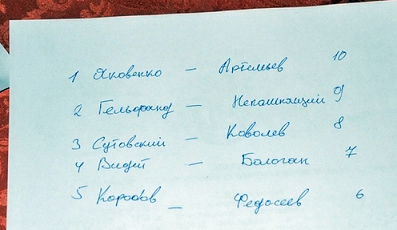 1 Яковенко — Артемьев 10
2 Гельфанд — Непомнящий 9
3 Сутовский — Ковалев 8
4 Видит — Бологан 7
5 Коробов — Федосеев 6